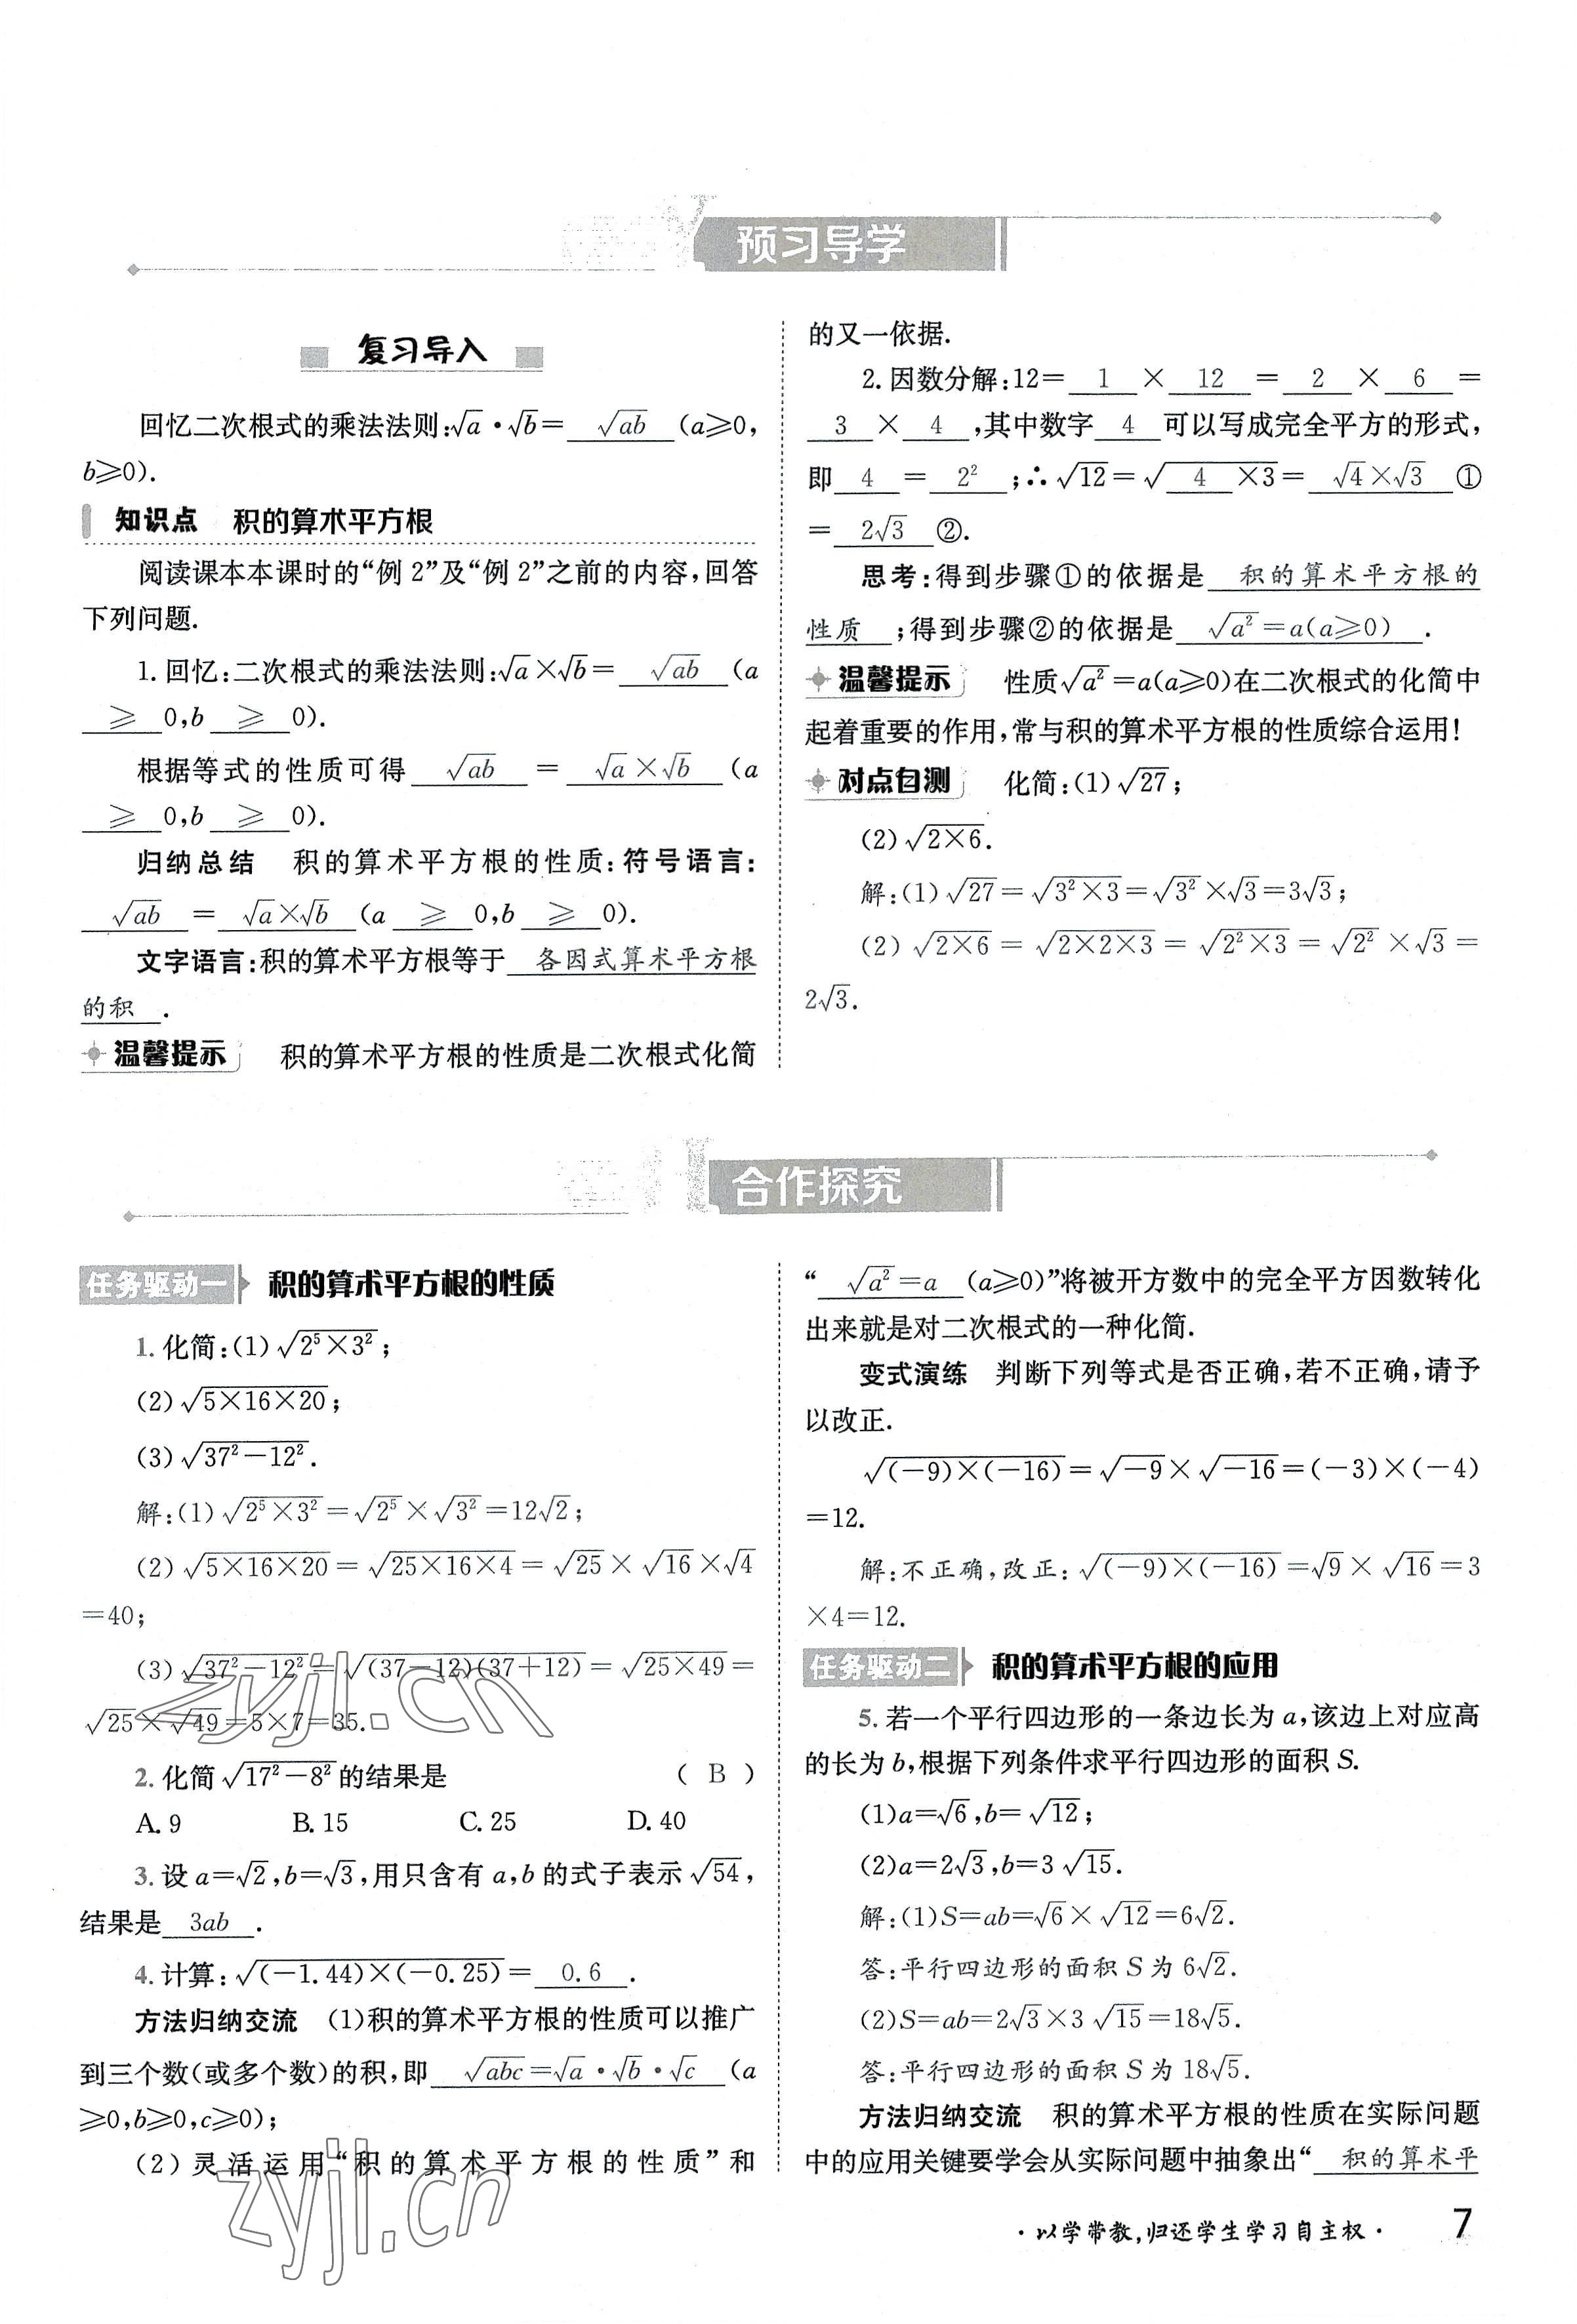 预习导学
复习导入
回忆二次根式的乘法法则:√a·√b= √ab (a≥0,
b≥0).
知识点 积的算术平方根
阅读课本本课时的“例2”及“例2”之前的内容,回答
下列问题.
1.回忆:二次根式的乘法法则:√a×√b= √ab (a
≥ 0,b ≥ 0).
根据等式的性质可得 √ab = √a×√b (a
≥ 0,b ≥ 0).
归纳总结 积的算术平方根的性质:符号语言:
√ab = √a×√b (a ≥ 0,b ≥ 0).
文字语言:积的算术平方根等于 各因式算术平方根
的积 .
温馨提示 积的算术平方根的性质是二次根式化简
的又一依据.
2.因数分解:12= 1 × 12 = 2 × 6 =
3 × 4 ,其中数字 4 可以写成完全平方的形式,
即 4 = 2² ;∴√12=√(4×3)= √4×√3 ①
= 2√3 ②.
思考:得到步骤①的依据是 积的算术平方根的
性质 ;得到步骤②的依据是 √a²=a(a≥0) .
温馨提示 性质√a²=a(a≥0)在二次根式的化简中
起着重要的作用,常与积的算术平方根的性质综合运用!
对点自测 化简:(1)√27;
(2)√(2×6).
解:(1)√27=√(3²×3)=√3²×√3=3√3;
(2)√(2×6)=√(2×2×3)=√(2²×3)=√2²×√3=
2√3.
合作探究
任务驱动一 积的算术平方根的性质
1.化简:(1)√(2⁵×3²);
(2)√(5×16×20);
(3)√(37²-12²).
解:(1)√(2⁵×3²)=√2⁵×√3²=12√2;
(2)√(5×16×20)=√(25×16×4)=√25×√16×√4
=40;
(3)√(37²-12²)=√((37-12)(37+12))=√(25×49)=
√25×√49=5×7=35.
2.化简√(17²-8²)的结果是 ( B )
A.9 B.15 C.25 D.40
3.设a=√2,b=√3,用只含有a,b的式子表示√54,
结果是 3ab .
4.计算:√((-1.44)×(-0.25))= 0.6 .
方法归纳交流 (1)积的算术平方根的性质可以推广
到三个数(或多个数)的积,即 √abc=√a·√b·√c (a
≥0,b≥0,c≥0);
(2)灵活运用“积的算术平方根的性质”和
“ √a²=a (a≥0)”将被开方数中的完全平方因数转化
出来就是对二次根式的一种化简.
变式演练 判断下列等式是否正确,若不正确,请予
以改正.
√((-9)×(-16))=√-9×√-16=(-3)×(-4)
=12.
解:不正确,改正:√((-9)×(-16))=√9×√16=3
×4=12.
任务驱动二 积的算术平方根的应用
5.若一个平行四边形的一条边长为a,该边上对应高
的长为b,根据下列条件求平行四边形的面积S.
(1)a=√6,b=√12;
(2)a=2√3,b=3√15.
解:(1)S=ab=√6×√12=6√2.
答:平行四边形的面积S为6√2.
(2)S=ab=2√3×3√15=18√5.
答:平行四边形的面积S为18√5.
方法归纳交流 积的算术平方根的性质在实际问题
中的应用关键要学会从实际问题中抽象出“ 积的算术平
·以学带教,归还学生学习自主权·
7
zyjl.cn
zyjl.cn